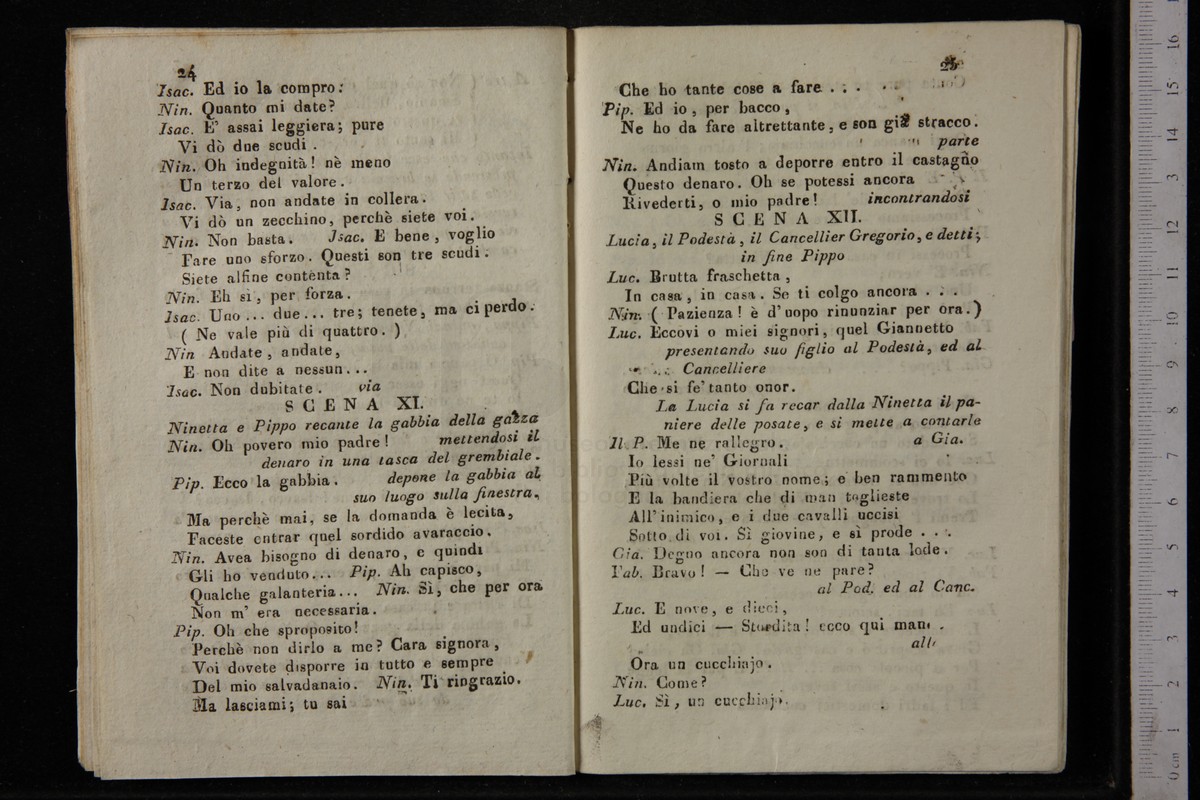 24
Isac. Ed io la compro:
Nin. Quanto mi date?
Isac. E' assai leggiera; pure
Vi dò due scudi .
Nin. Oh indegnità! nè meno
Un terzo del valore.
Isac. Via, non andate in collera.
Vi dò un zecchino, perchè siete voi.
Nin. Non basta. Isac. E bene, voglio
Fare uno sforzo. Questi son tre scudi.
Siete alfine contenta?
Nin. Eh sì, per forza.
Isac. Uno... due... tre; tenete, ma ci perdo.
( Ne vale più di quattro. )
Nin Andate, andate,
E non dite a nessun...
Isac. Non dubitate. via
SCENA XI.
Ninetta e Pippo recante la gabbia della gazza
Nin. Oh povero mio padre! mettendosi il
denaro in una tasca del grembiale.
Pip. Ecco la gabbia. depone la gabbia al
suo luogo sulla finestra.
Ma perchè mai, se la domanda è lecita,
Faceste entrar quel sordido avaraccio.
Nin. Avea bisogno di denaro, e quindi
Gli ho venduto... Pip. Ah capisco,
Qualche galanteria... Nin. Sì, che per ora
Non m' era necessaria.
Pip. Oh che sproposito!
Perchè non dirlo a me? Cara signora,
Voi dovete disporre in tutto e sempre
Del mio salvadanaio. Nin. Ti ringrazio.
Ma lasciami; tu sai
25
Che ho tante cose a fare . . .
Pip. Ed io, per bacco,
Ne ho da fare altrettante, e son già stracco.
parte
Nin. Andiam tosto a deporre entro il castagno
Questo denaro. Oh se potessi ancora
Rivederti, o mio padre! incontrandosi
SCENA XII.
Lucia, il Podestà, il Cancellier Gregorio, e detti;
in fine Pippo
Luc. Brutta fraschetta,
In casa, in casa. Se ti colgo ancora . . .
Nin. ( Pazienza! è d'uopo rinunziar per ora.)
Luc. Eccovi o miei signori, quel Giannetto
presentando suo figlio al Podestà, ed al
Cancelliere
Che si fe' tanto onor.
La Lucia si fa recar dalla Ninetta il pa-
niere delle posate, e si mette a contarle
Il P. Me ne rallegro. a Gia.
Io lessi ne' Giornali
Più volte il vostro nome; e ben rammento
E la bandiera che di man toglieste
All' inimico, e i due cavalli uccisi
Sotto di voi. Sì giovine, e sì prode . . .
Gia. Degno ancora non son di tanta lode.
Fab. Bravo! — Che ve ne pare?
al Pod. ed al Canc.
Luc. E nove, e dieci,
Ed undici — Stordita! ecco qui manc
alla
Ora un cucchiajo.
Nin. Come?
Luc. Sì, un cucchiajo.